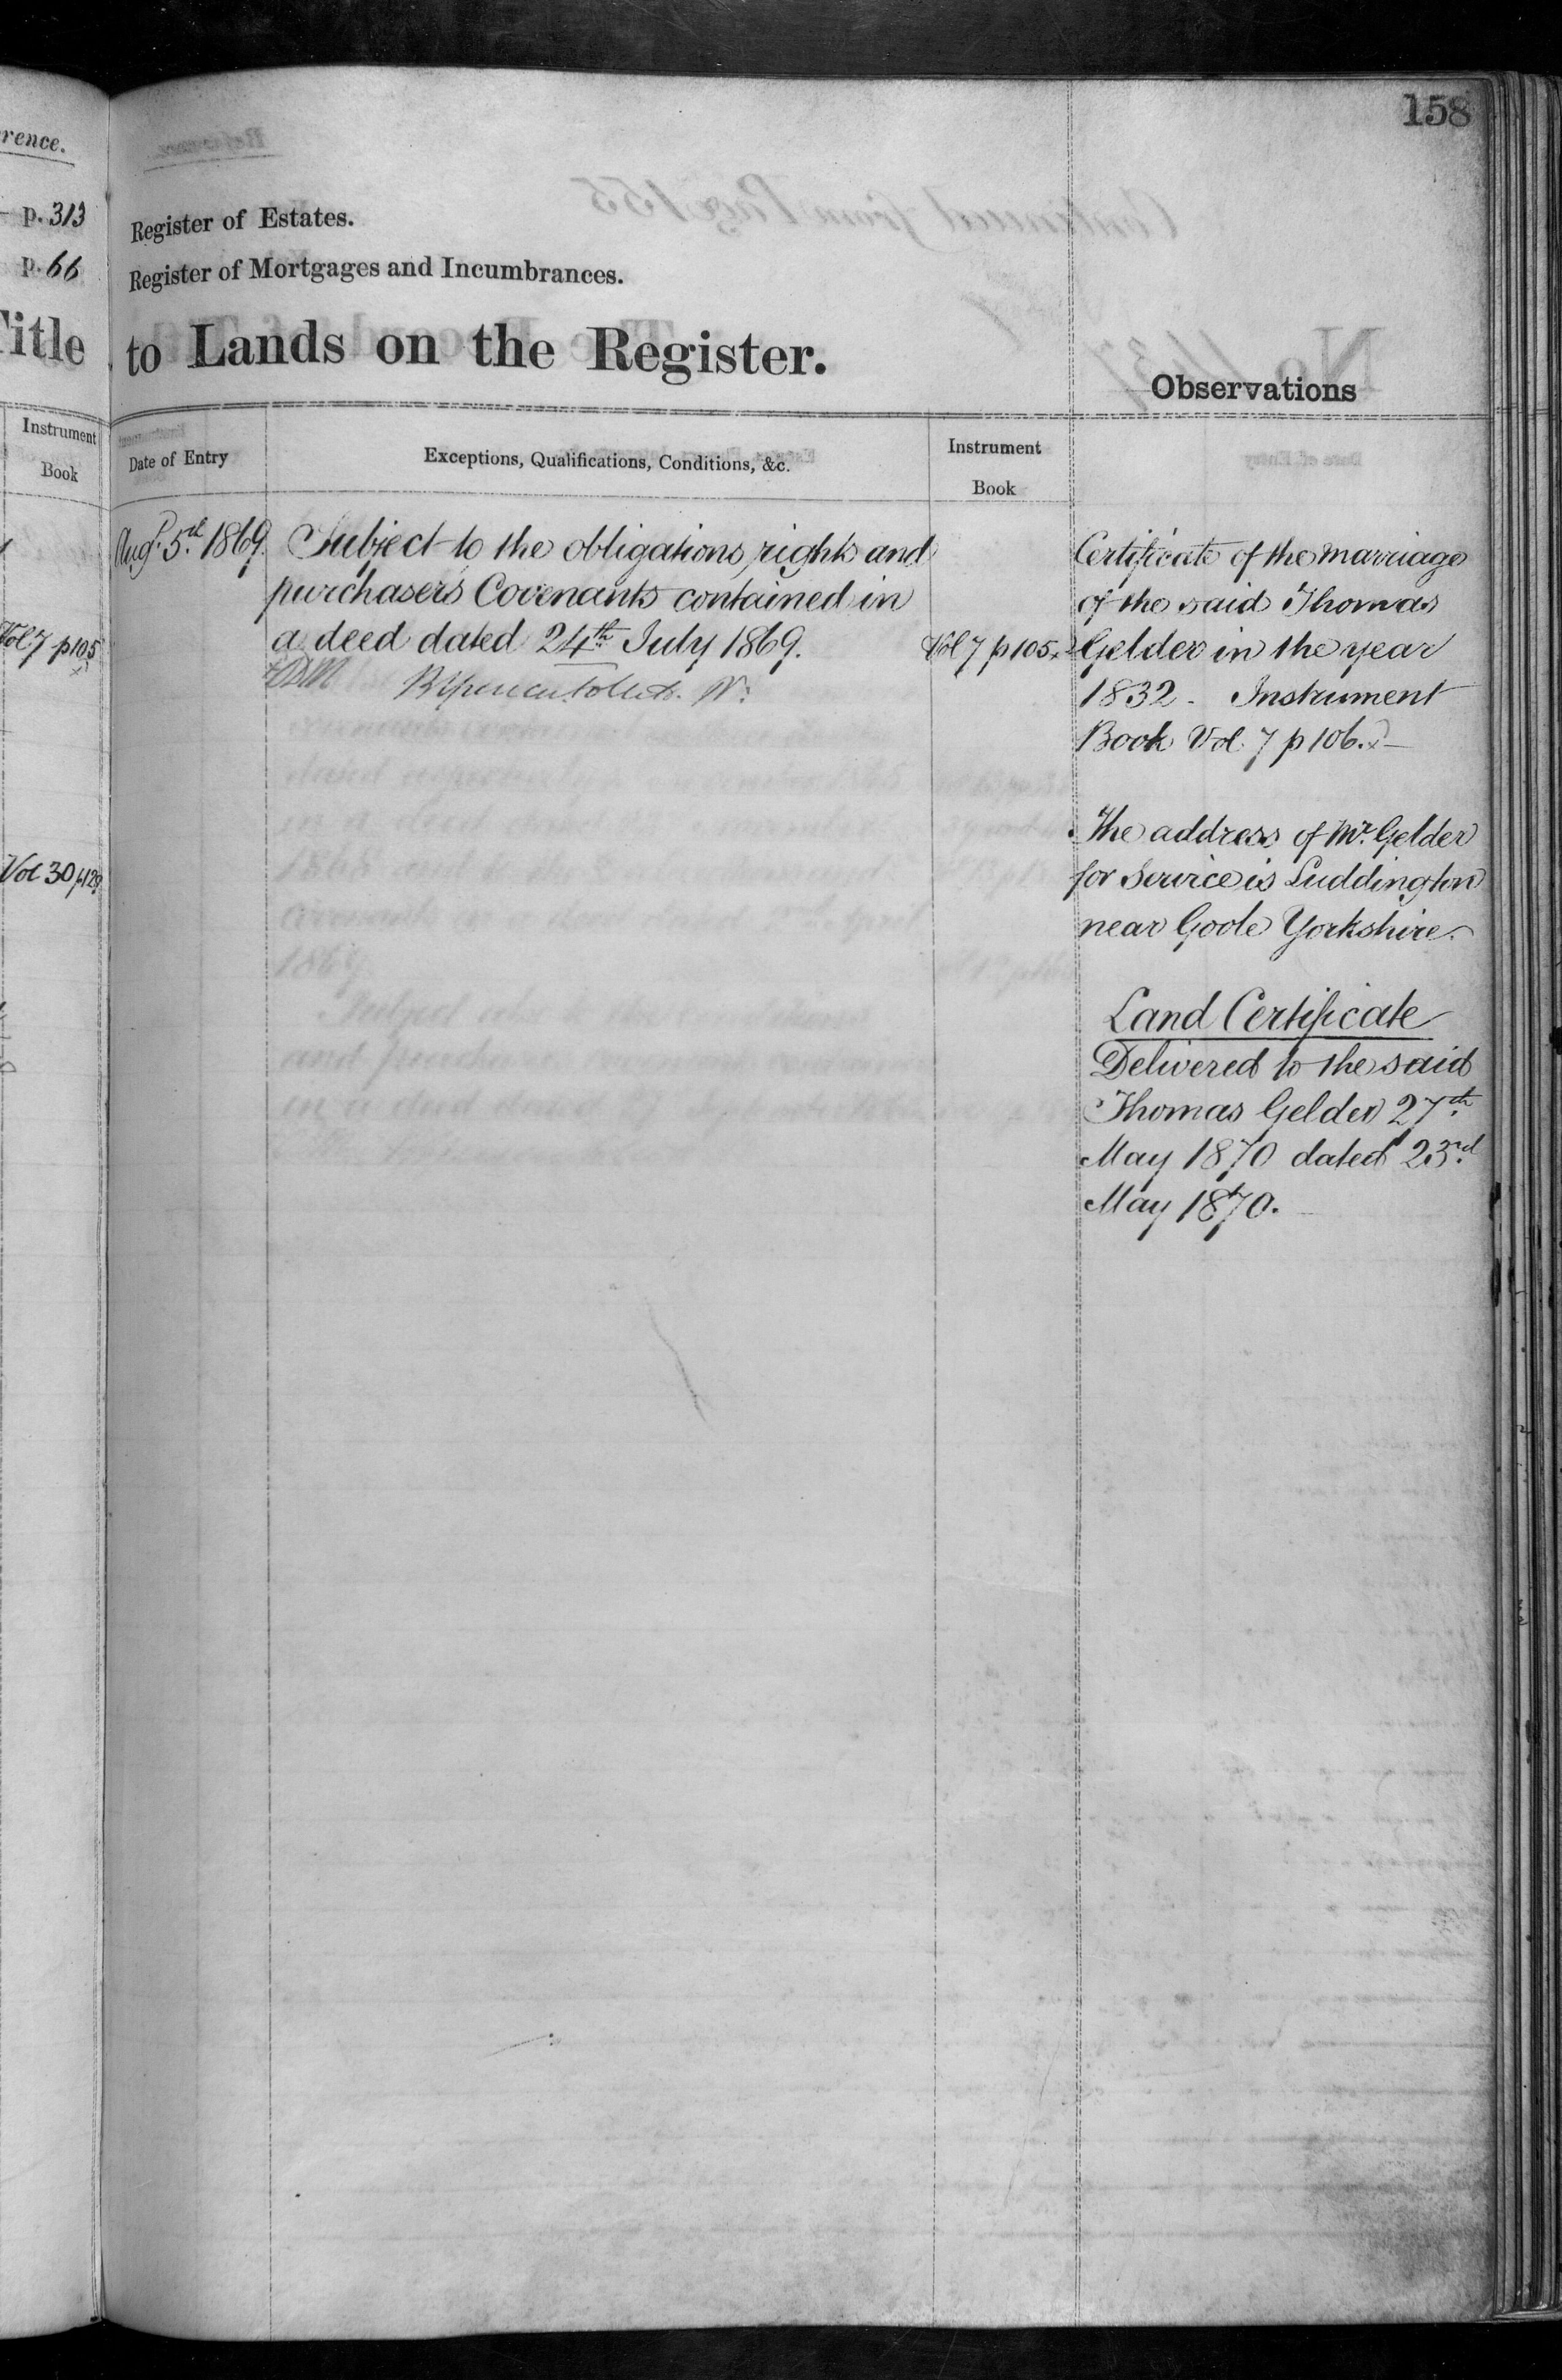 158
rence.
p. 313
p. 66
Title
Instrument
Book
Vol 7 p105
Vol 30 p129
Register of Estates.
Register of Mortgages and Incumbrances.
to Lands on the Register.
Observations
Date of Entry
Exceptions, Qualifications, Conditions, &c.
Instrument
Book
Augt. 5th 1869.
Subject to the obligations, rights and
purchasers Covenants contained in
a deed dated 24th July 1869.
Vol 7 p105
Certificate of the marriage
of the said Thomas
Gelder in the year
1832 - Instrument
Book Vol 7 p 106.
The address of Mr. Gelder
for Service is Luddington
near Goole Yorkshire.
Land Certificate
Delivered to the said
Thomas Gelder 27th
May 1870 dated 23rd
May 1870.